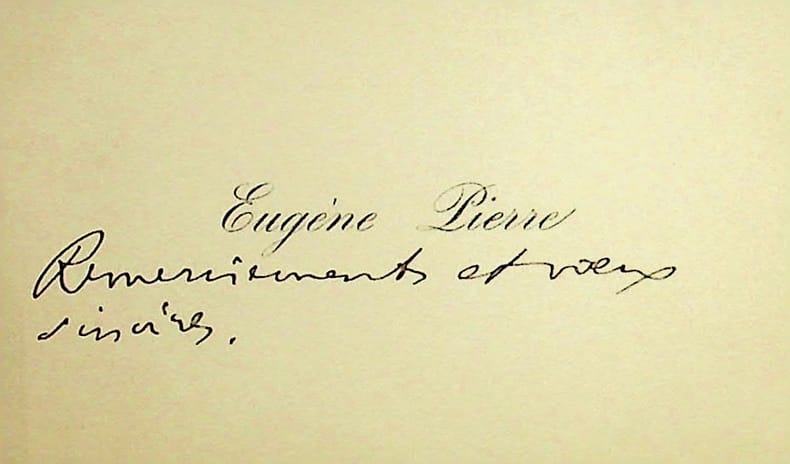 Eugène Pierre
Remerciements et vœux
sincères.